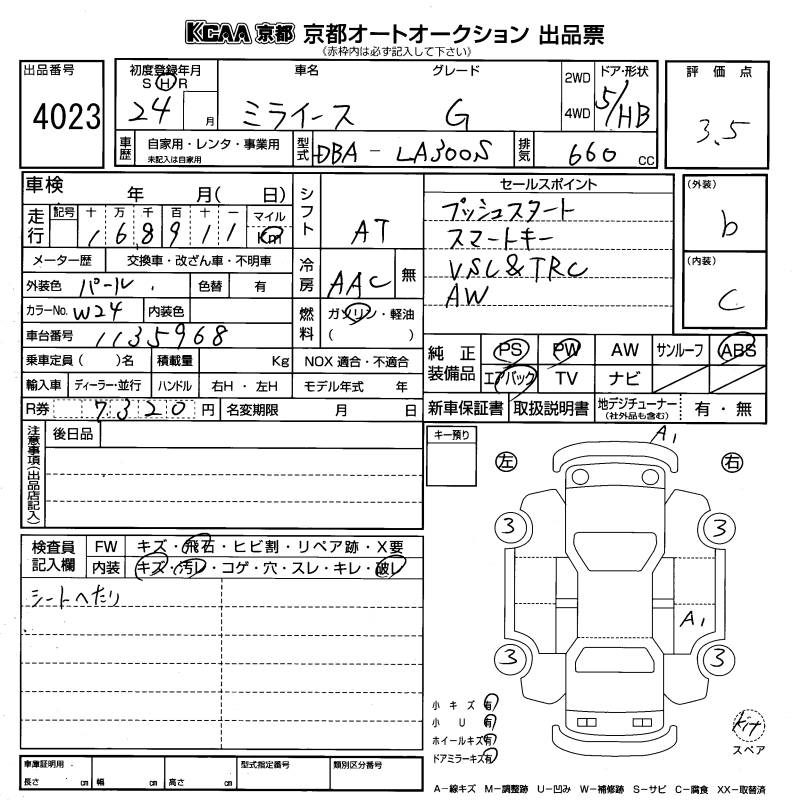 KCAA 京都 京都オートオークション 出品票
(赤枠内は必ず記入して下さい)
出品番号 4023
初度登録年月 S H R 24 月
車名 ミライース
グレード G
2WD 4WD
ドア・形状 5/HB
評価点 3.5
車歴 自家用・レンタ・事業用 未記入は自家用
型式 DBA - LA300S
排気 660 CC
車検 年 月( 日)
走行 記号 十 万 千 百 十 一 マイル Km
1 6 8 9 1 1
メーター歴 交換車・改ざん車・不明車
外装色 パール 色替 有
カラーNo. W24 内装色
車台番号 1135968
乗車定員 ( )名 積載量 Kg
輸入車 ディーラー・並行 ハンドル 右H・左H
R券 7320 円 名変期限 月 日
シフト AT
冷房 AAC 無
燃料 ガソリン・軽油 ( )
NOX 適合・不適合
モデル年式 年
セールスポイント
プッシュスタート
スマートキー
VSC&TRC
AW
(外装) b
(内装) C
純正装備品 PS PW AW サンルーフ ABS
エアバック TV ナビ
新車保証書 取扱説明書 地デジチューナー (社外品も含む) 有・無
注意事項(出品店記入) 後日品
キー預り
左 右
A1
3 3
A1
3 3
検査員記入欄 FW キズ・飛石・ヒビ割・リペア跡・X要
内装 キズ・汚レ・コゲ・穴・スレ・キレ・破レ
シートへたり
小キズ 有
小U 有
ホイールキズ 有
ドアミラーキズ 有
kit
スペア
車庫証明用 長さ cm 幅 cm 高さ cm
型式指定番号 類別区分番号
A-線キズ M-調整跡 U-凹み W-補修跡 S-サビ C-腐食 XX-取替済